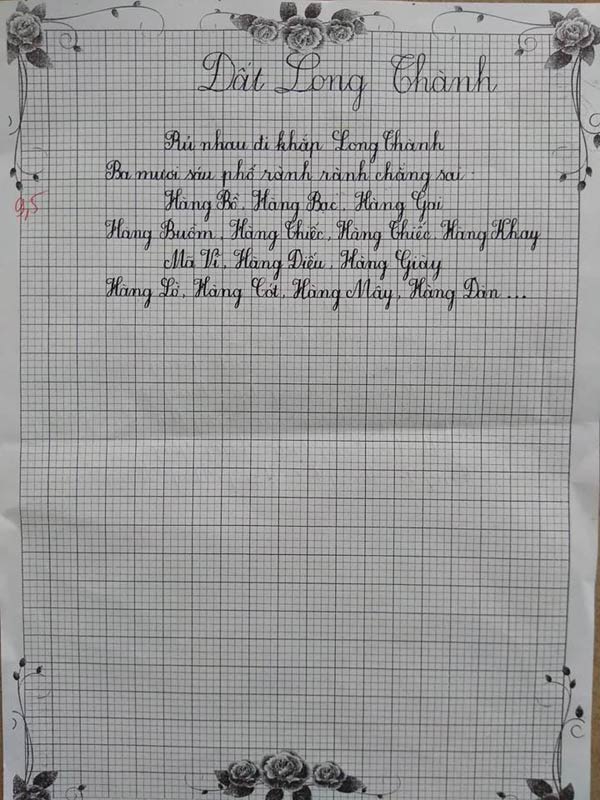 Đất Long Thành
Rủ nhau đi khắp Long Thành
Ba mươi sáu phố rành rành chẳng sai.
Hàng Bồ, Hàng Bạc, Hàng Gai
Hàng Buồm, Hàng Thiếc, Hàng Thiếc, Hàng Khay
Mã Vĩ, Hàng Điếu, Hàng Giày
Hàng Lờ, Hàng Cót, Hàng Mây, Hàng Đàn ...
9,5